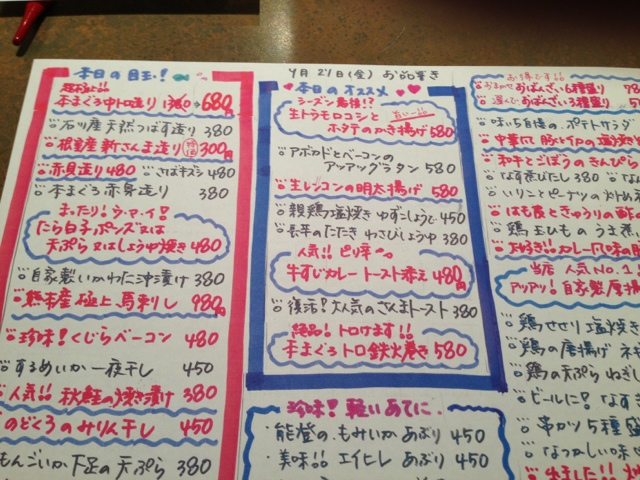 本日の目玉!
超おすすめ!!
本まぐろ中トロ造り 1380→680円
石川産 天然つばす造り 380
根室産 新さんま造り 300円
赤貝造り 480 さばキズシ 480
本まぐろ赤身造り 380
まったり!ウ・マ・イ!
たら白子 ポンズ 又は
天ぷら 又は しょうゆ焼き 480
自家製いかわた沖漬け 380
熊本産 極上 馬刺し 980円
珍味!くじらベーコン 480
するめいか 一夜干し 450
人気!! 秋鮭の焼き漬け 380
のどくろのみりん干し 450
もんごいか下足の天ぷら 380
9月27日(金) お品書き
本日のオススメ
シーズン最後!?
生トウモロコシと
ホタテのかき揚げ 680
アボカドとベーコンの
アツアツグラタン 580
生レンコンの明太揚げ 580
親鶏塩焼き ゆずこしょうで 450
長芋のたたき わさびしょうゆ 380
人気!! ピリ辛
牛すじカレー トースト添え 480円
復活!大人気のさんまトースト 380
絶品!トロけます!!
本まぐろ トロ鉄火巻き 580
珍味!軽いあてに
能登の もみいか あぶり 450
美味!! エイヒレ あぶり 450
お得です!!
おまかせ おばんざい6種盛り
選べる おばんざい3種盛り
味に自信の ポテトサラダ
中華風 豚とイカの塩焼き
和牛とごぼうのきんぴら
なす煮びたし 380
いりことピーナツの炒め
はも皮ときゅうりの酢
鶏 玉ひも のうま煮
カレー風味の
当店 人気No.1
アツアツ!自家製厚揚
鶏せせり 塩焼き
鶏の唐揚げ
鶏の天ぷら ねぎし
ビールに!なす
串かつ 5種盛
なつかしい味